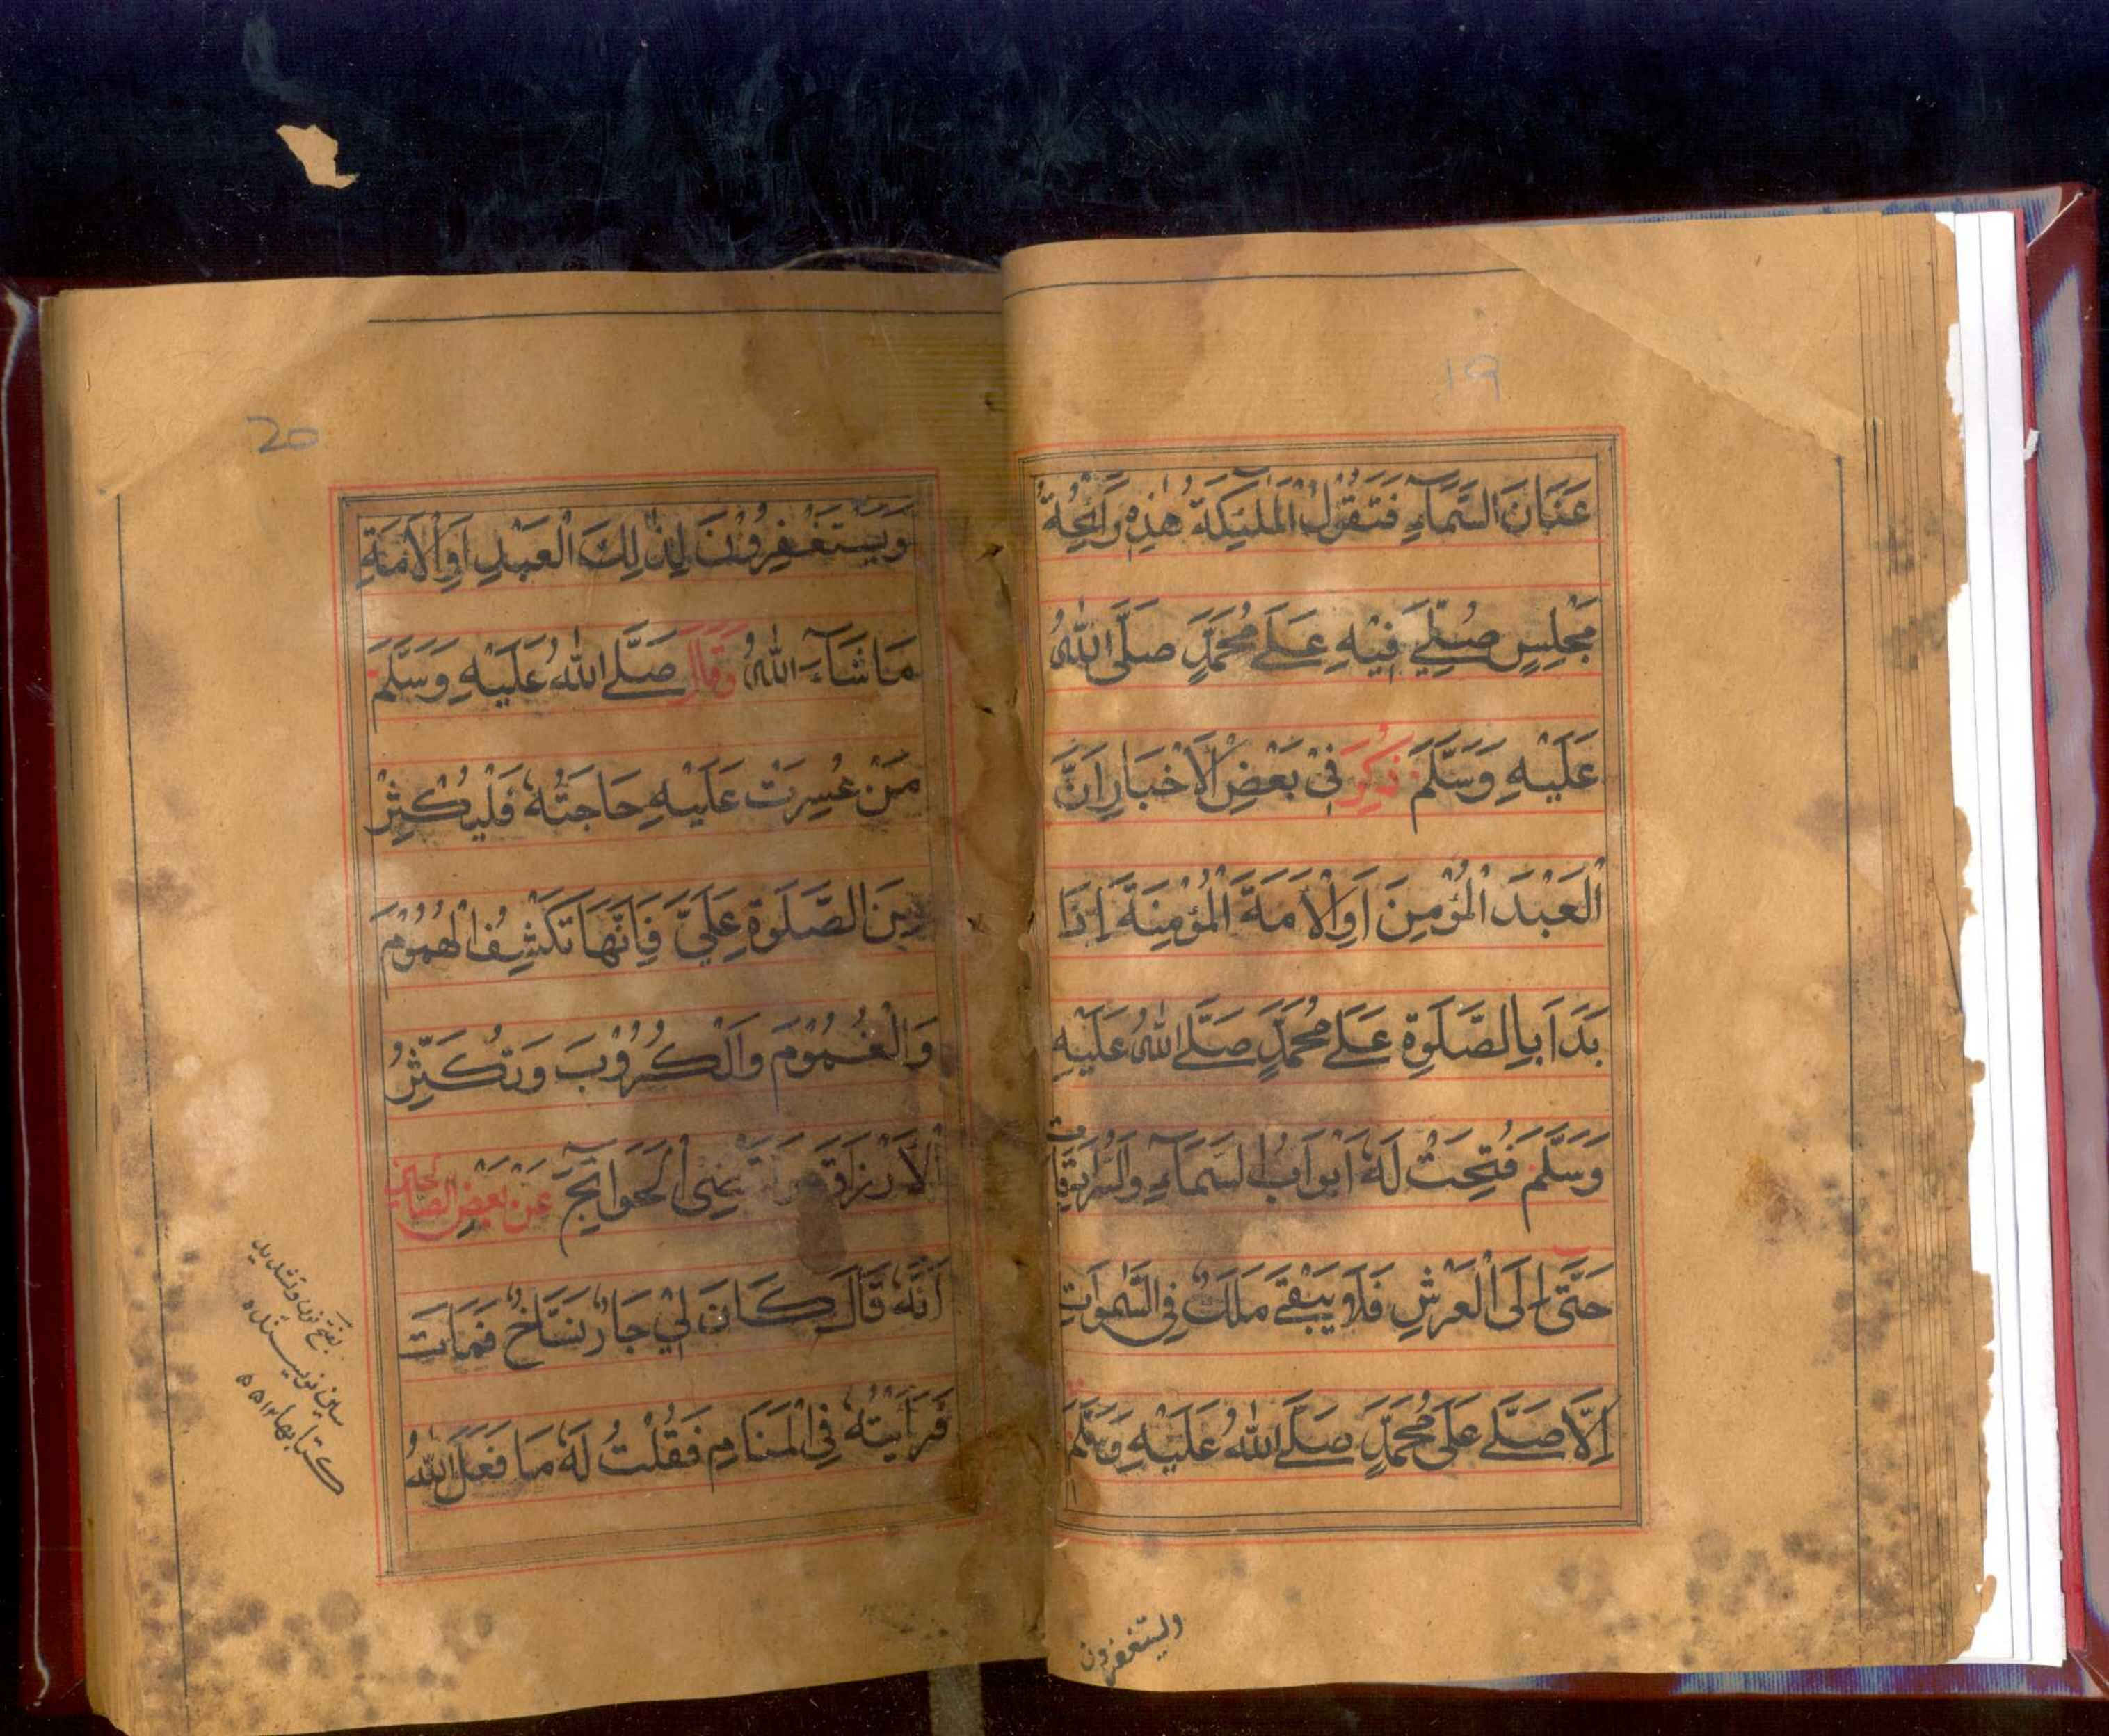 19
عَنَانَ السَّمَآءِ فَتَقُوْلُ الْمَلٰٓئِكَةُ هٰذِهٖ رَآئِحَةُ
مَجْلِسٍ صُلِّيَ فِيْهِ عَلٰے مُحَمَّدٍ صَلَّى اللّٰهُ
عَلَيْهِ وَسَلَّمَ ذُكِرَ فِيْ بَعْضِ الْاَخْبَارِ اَنَّ
الْعَبْدَ الْمُؤْمِنَ اَوِالْاَمَةَ الْمُؤْمِنَةَ اِذَا
بَدَاَ بِالصَّلٰوةِ عَلٰے مُحَمَّدٍ صَلَّے اللّٰهُ عَلَيْهِ
وَسَلَّمَ فُتِحَتْ لَهٗ اَبْوَابُ السَّمَآءِ وَالسُّرَادِقَاتُ
حَتّٰى اِلَى الْعَرْشِ فَلَا يَبْقٰے مَلَكٌ فِى السَّمٰوَاتِ
اِلَّا صَلّٰے عَلٰى مُحَمَّدٍ صَلَّے اللّٰهُ عَلَيْهِ وَسَلَّمَ
ويستغفرون
20
وَيَسْتَغْفِرُوْنَ لِذٰلِكَ الْعَبْدِ اَوِالْاَمَةِ
مَا شَآءَ اللّٰهُ وَقَالَ صَلَّے اللّٰهُ عَلَيْهِ وَسَلَّمَ
مَنْ عَسُرَتْ عَلَيْهِ حَاجَتُهٗ فَلْيُكْثِرْ
مِنَ الصَّلٰوةِ عَلَيَّ فَاِنَّهَا تَكْشِفُ الْهُمُوْمَ
وَالْغُمُوْمَ وَالْكُرُوْبَ وَتُكَثِّرُ
الْاَرْزَاقَ وَتَقْضِى الْحَوَآئِجَ عَنْ بَعْضِ الصَّالِحِيْنَ
اَنَّهٗ قَالَ كَانَ لِيْ جَارٌ نَسَّاخٌ فَمَاتَ
فَرَاَيْتُهٗ فِي الْمَنَامِ فَقُلْتُ لَهٗ مَا فَعَلَ اللّٰهُ
بفتح نون و تشديد
سين نويسنده
كتابها ١٢